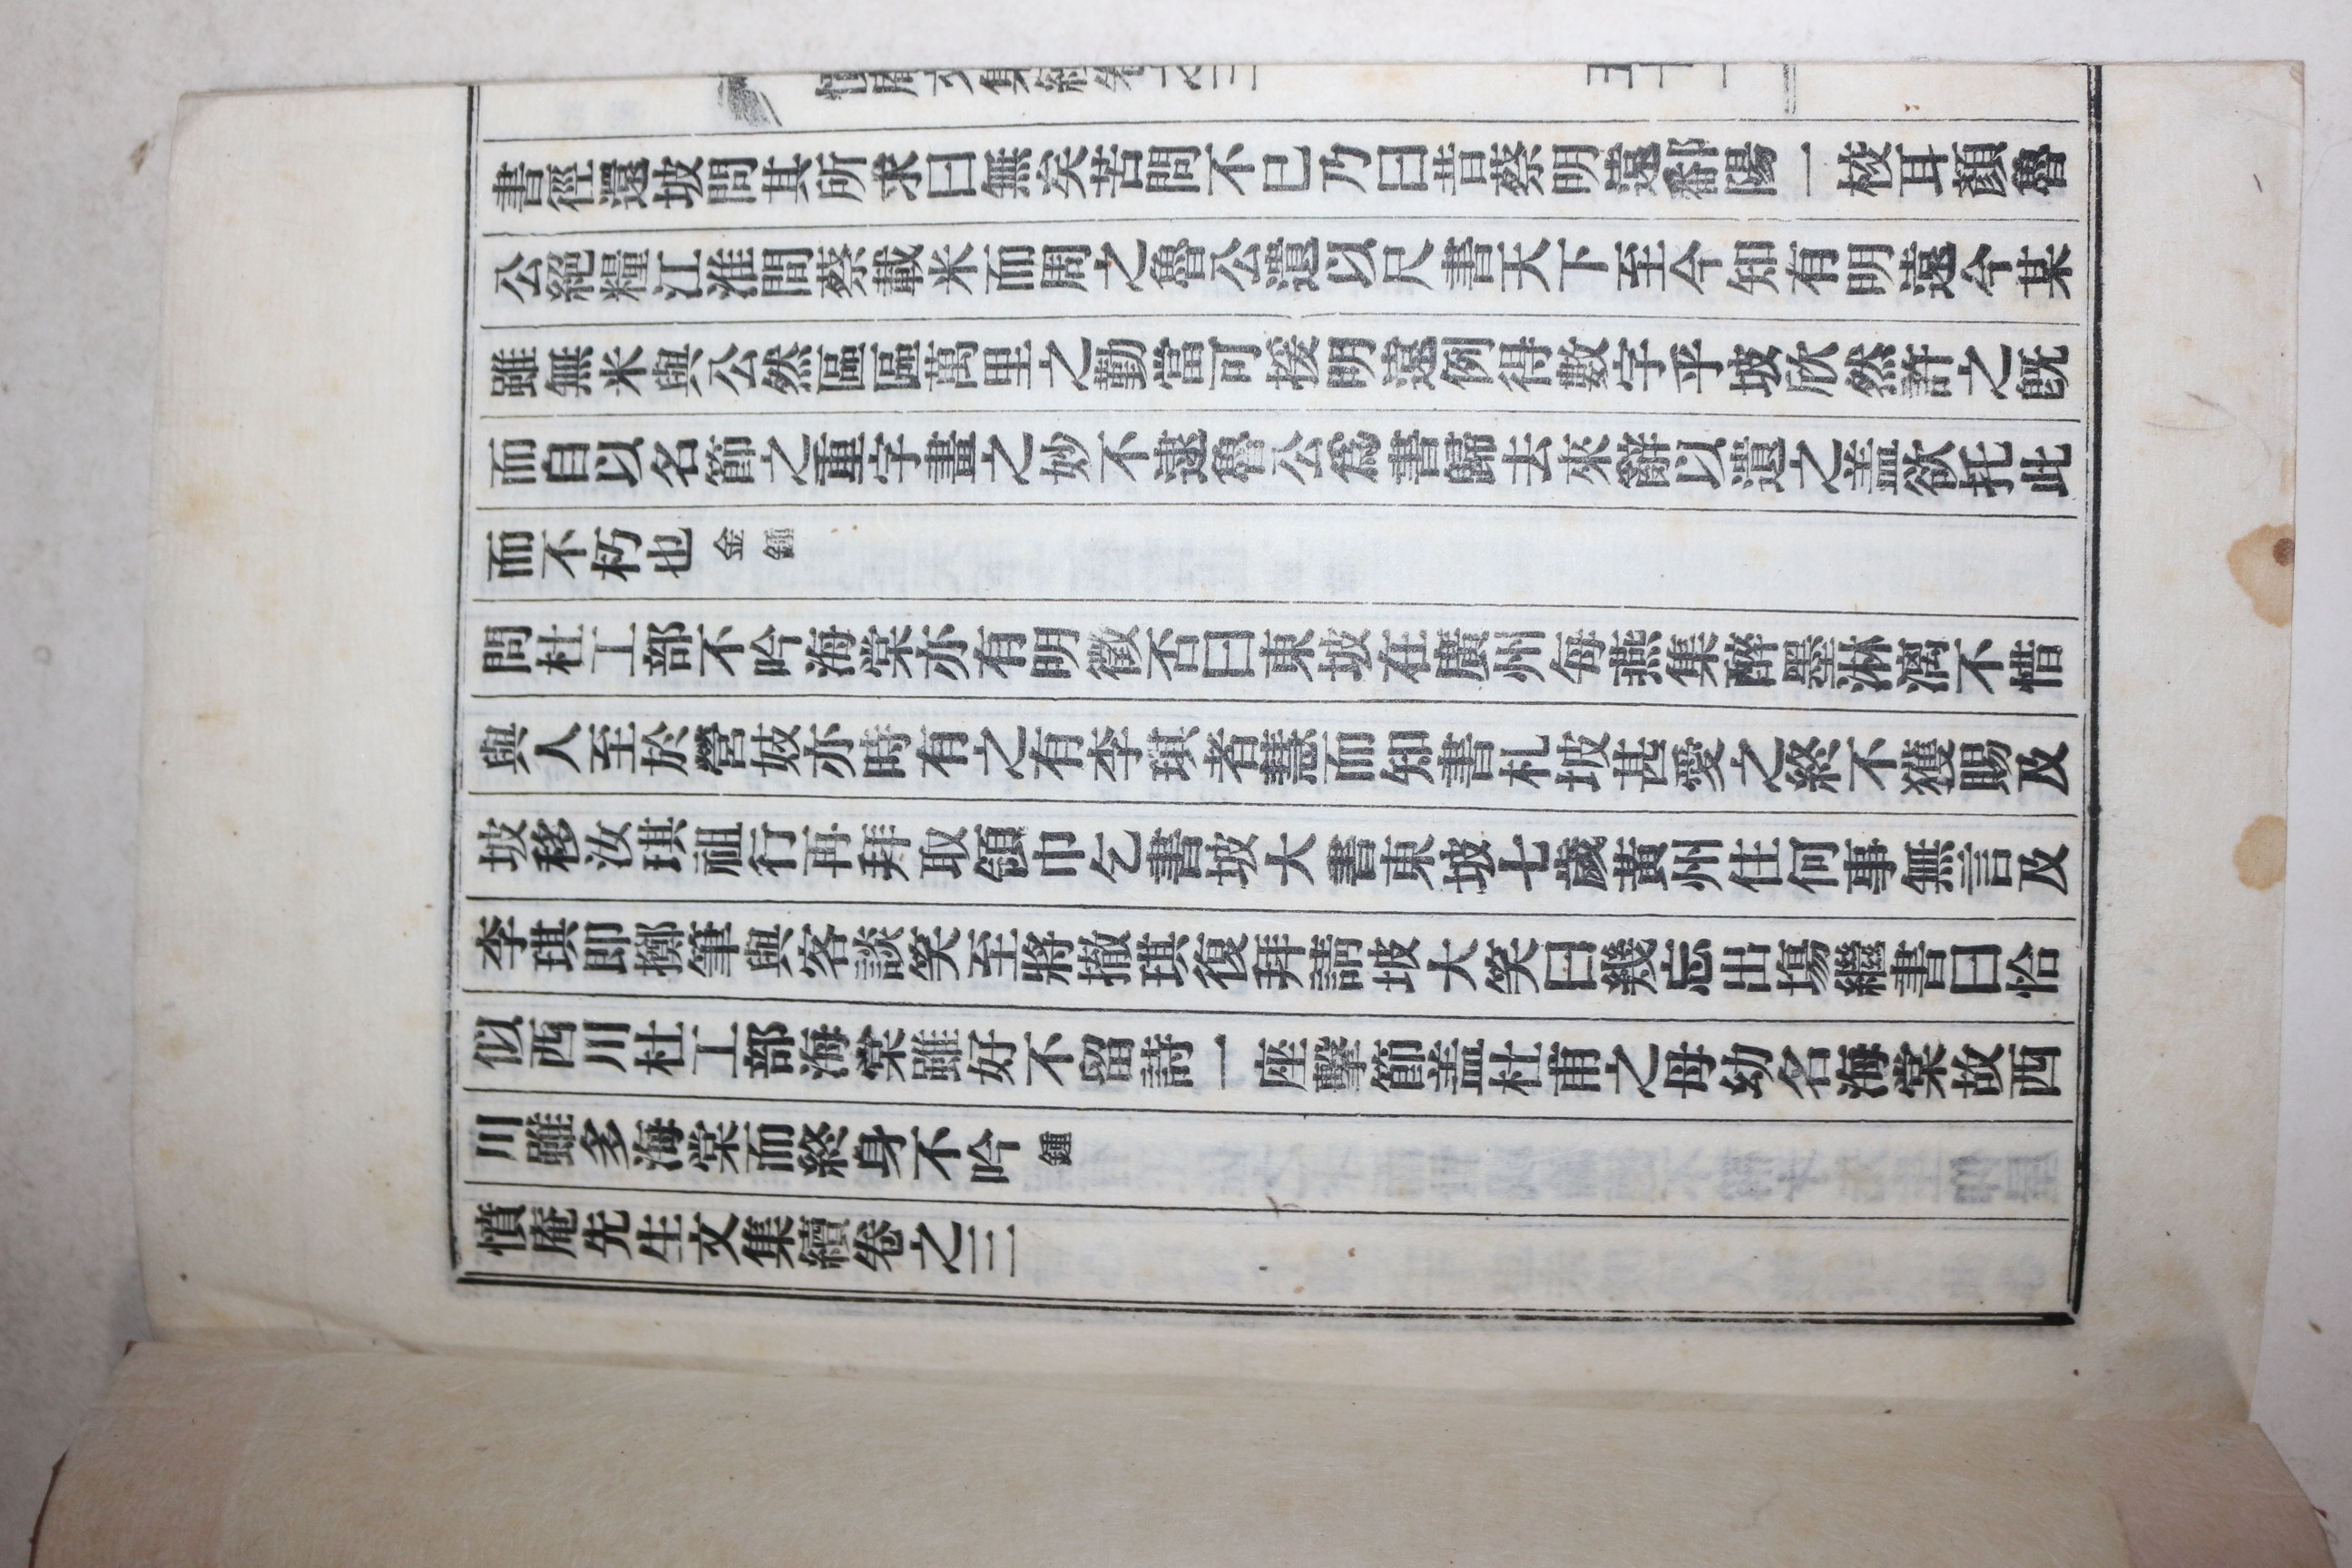 書徑還坡問其所求曰無矣苦問不已乃曰昔蔡明遠鄱陽一校耳顏魯
公絕糧江淮間蔡載米而周之魯公遺以尺書天下至今知有明遠今某
雖無米與公然區區萬里之勤當可援明遠例得數字乎坡欣然許之旣
而自以名節之重字畫之妙不減魯公爲書歸去來辭以遺之盖欲托此
而不朽也金鍾
問杜工部不吟海棠亦有明徵否曰東坡在黃州每燕集醉墨淋漓不惜
與人至於營妓亦時有之有李琪者慧而知書札坡甚愛之終不獲賜及
坡移汝琪祖行再拜取領巾乞書坡大書東坡七歲黃州住何事無言及
李琪卽擲筆與客談笑至將撤琪復拜請坡大笑曰幾忘出場繼書曰恰
似西川杜工部海棠雖好不留詩一座擊節盖杜甫之母幼名海棠故西
川雖多海棠而終身不吟鍾
憤庵先生文集續卷之三